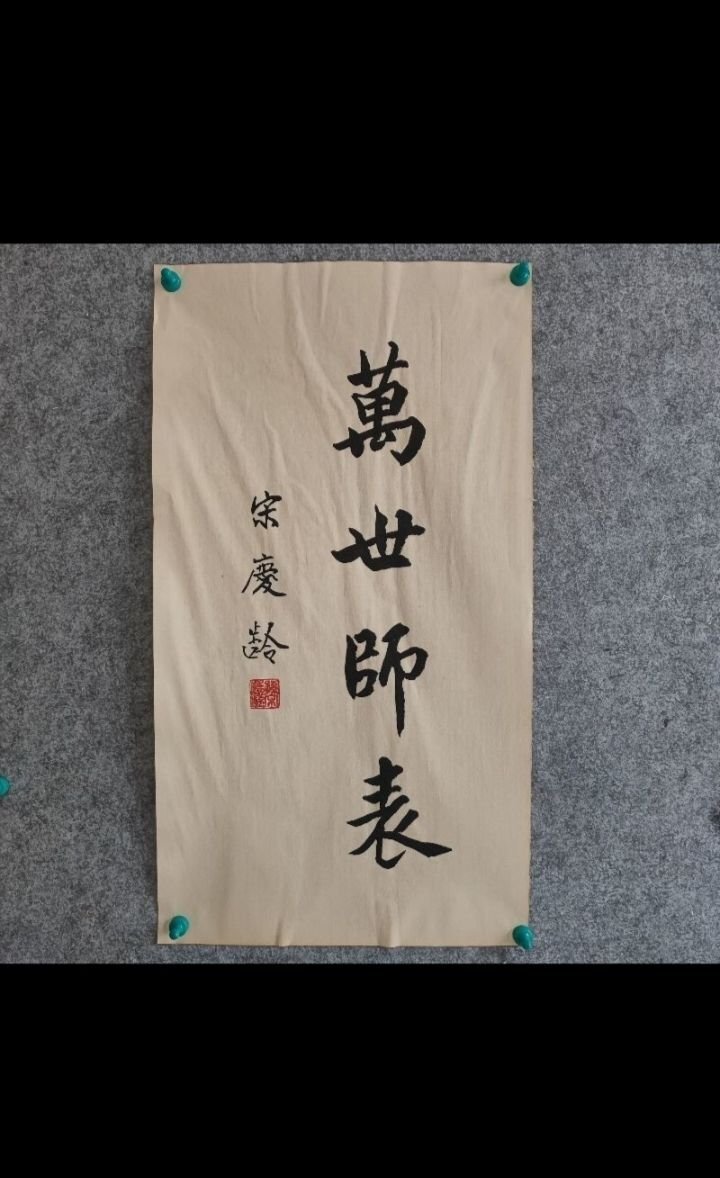 萬世師表
宋慶齡